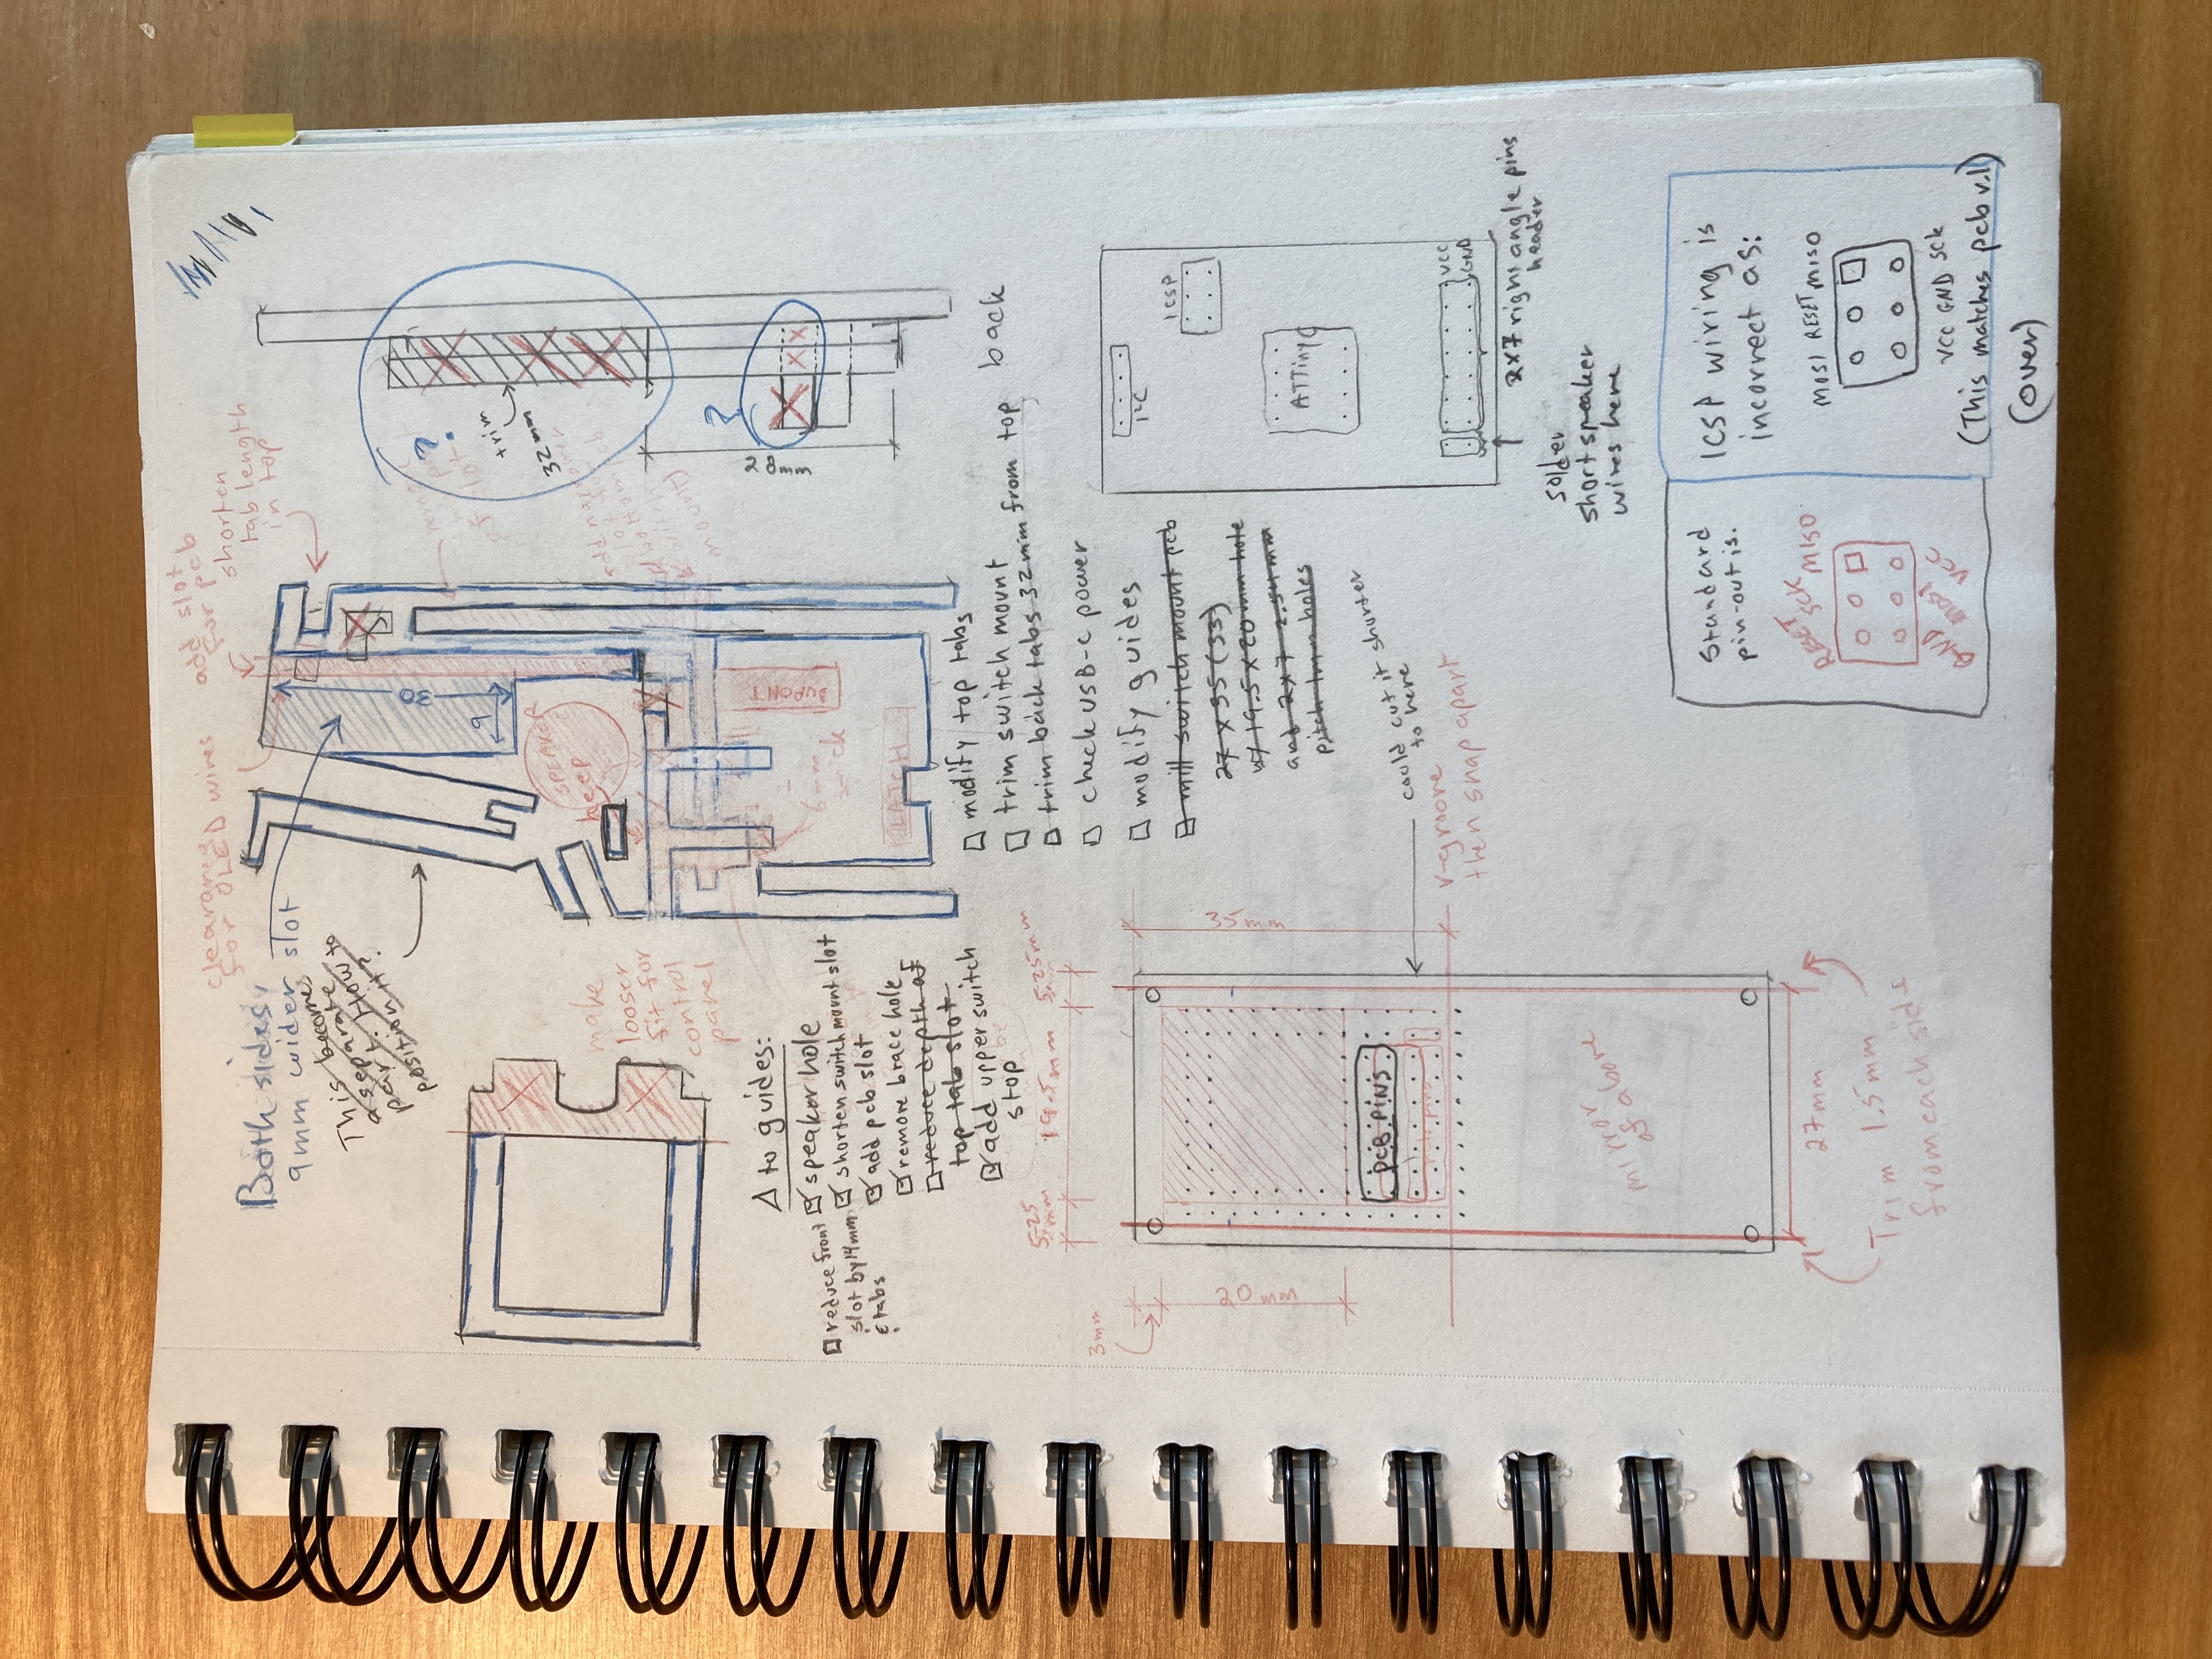 clearance
for OLED wires
add slot
for pcb
shorten
tab length
in top
Both sides,
9mm wider slot
This become
a separate
part. How to
position it?
30
9
SPEAKER
beep
DUPONT
LATCH
6mm
?
trim
32mm
?
28mm
back
make
looser
fit for
control
panel
Δ to guides:
speaker hole
shorten switch mount slot
add pcb slot
remove brace hole
reduce depth of
top tab slot
add upper switch
stop
reduce front
slot by 14mm
& tabs
modify top tabs
trim switch mount
trim back tabs 32mm from top
check USB-C power
modify guides
mill switch mount pcb
27 x 35 (33)
w/ 19.5 x 20mm hole
and 2x7 2.54mm
pitch 1mm holes
I²C
ICSP
ATTiny
VCC
GND
2x7 right angle pins
header
solder
short speaker
wires here
5.25
mm
19.5mm
5.25mm
35mm
3mm
20mm
PCB PINS
could cut it shorter
to here
v-groove
then snap apart
mirror
of above
27mm
Trim 1.5mm
from each side
Standard
pin-out is:
RESET SCK MISO
GND MOSI VCC
ICSP wiring is
incorrect as:
MOSI RESET MISO
VCC GND SCK
(This matches pcb v.1)
(over)